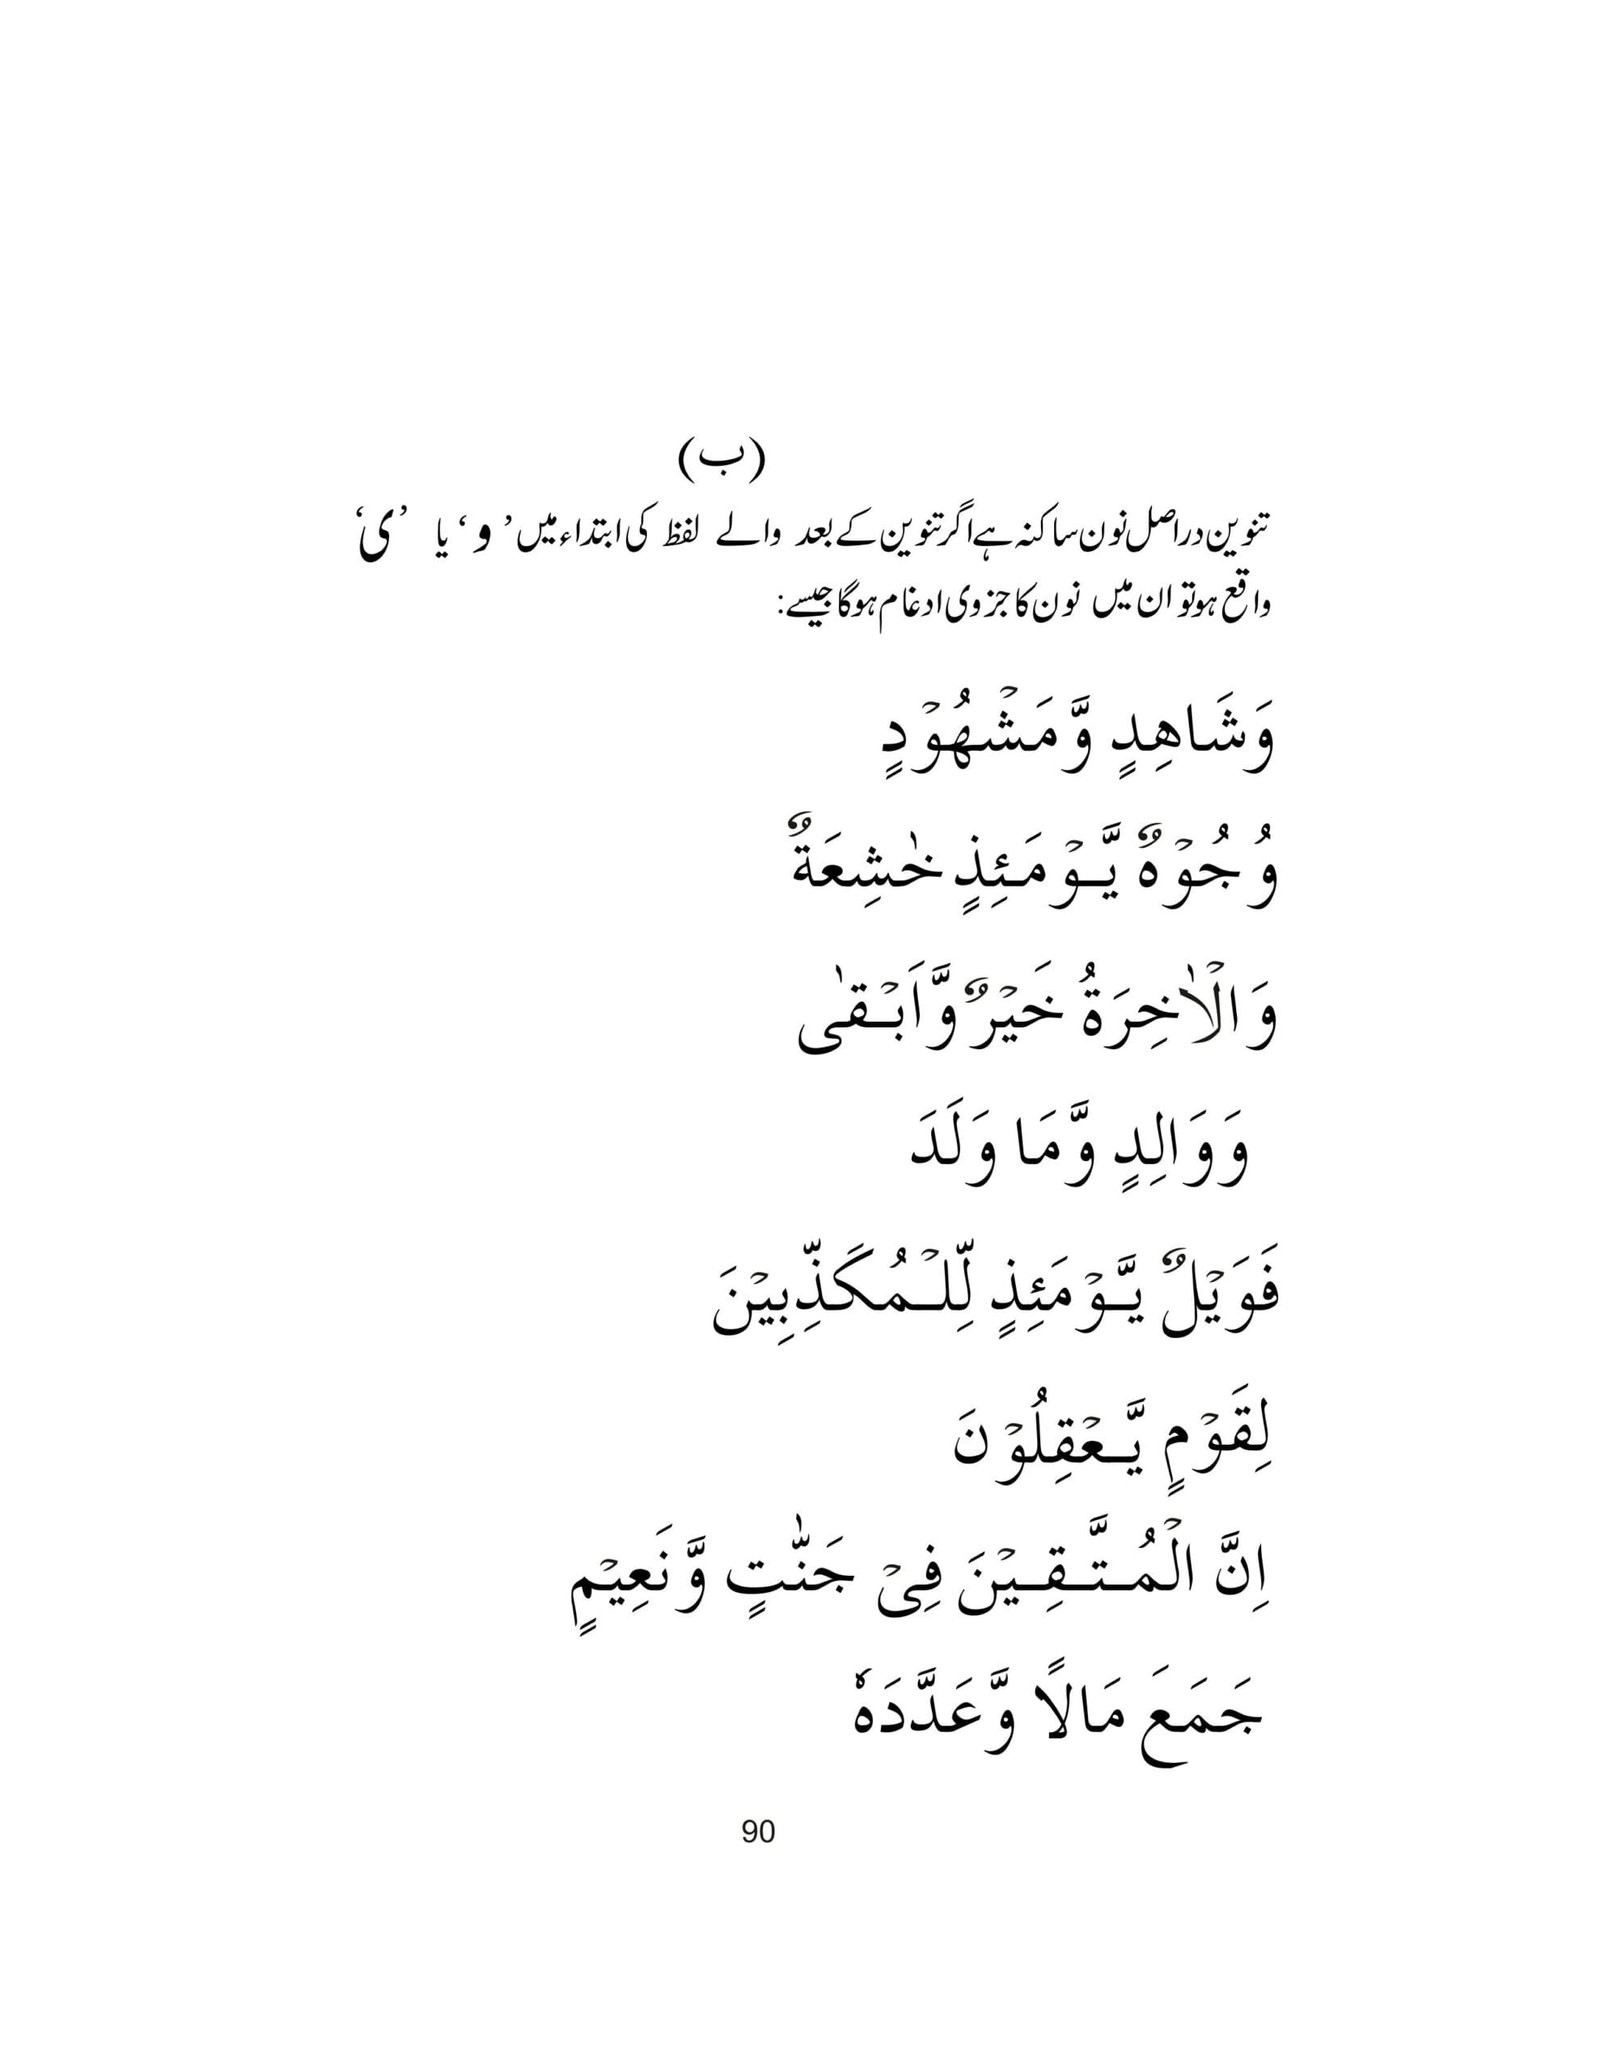 (ب)
تنوین دراصل نون ساکنہ ہے اگر تنوین کے بعد والے لفظ کی ابتداء میں ’و‘ یا ’ی‘
واقع ہو تو ان میں نون کا جزوی ادغام ہوگا جیسے:
وَشَاهِدٍ وَّمَشْهُوْدٍ
وُجُوْهٌ يَّوْمَئِذٍ خٰشِعَةٌ
وَالْاٰخِرَةُ خَيْرٌ وَّاَبْقٰى
وَوَالِدٍ وَّمَا وَلَدَ
فَوَيْلٌ يَّوْمَئِذٍ لِّلْمُكَذِّبِيْنَ
لِقَوْمٍ يَّعْقِلُوْنَ
اِنَّ الْمُتَّقِيْنَ فِىْ جَنّٰتٍ وَّنَعِيْمٍ
جَمَعَ مَالًا وَّعَدَّدَهٗ
90